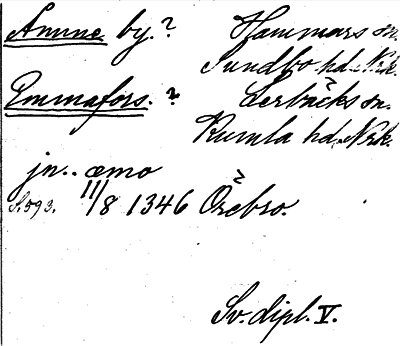 Åmme by.? Hammars sn.
Sundbo hd. Nrk.
Emmafors. ? Lerbäcks sn.
Kumla hd. Nrk.
jn.. æmo
S. 593. 11/8 1346 Örebro.
Sv. dipl. V.